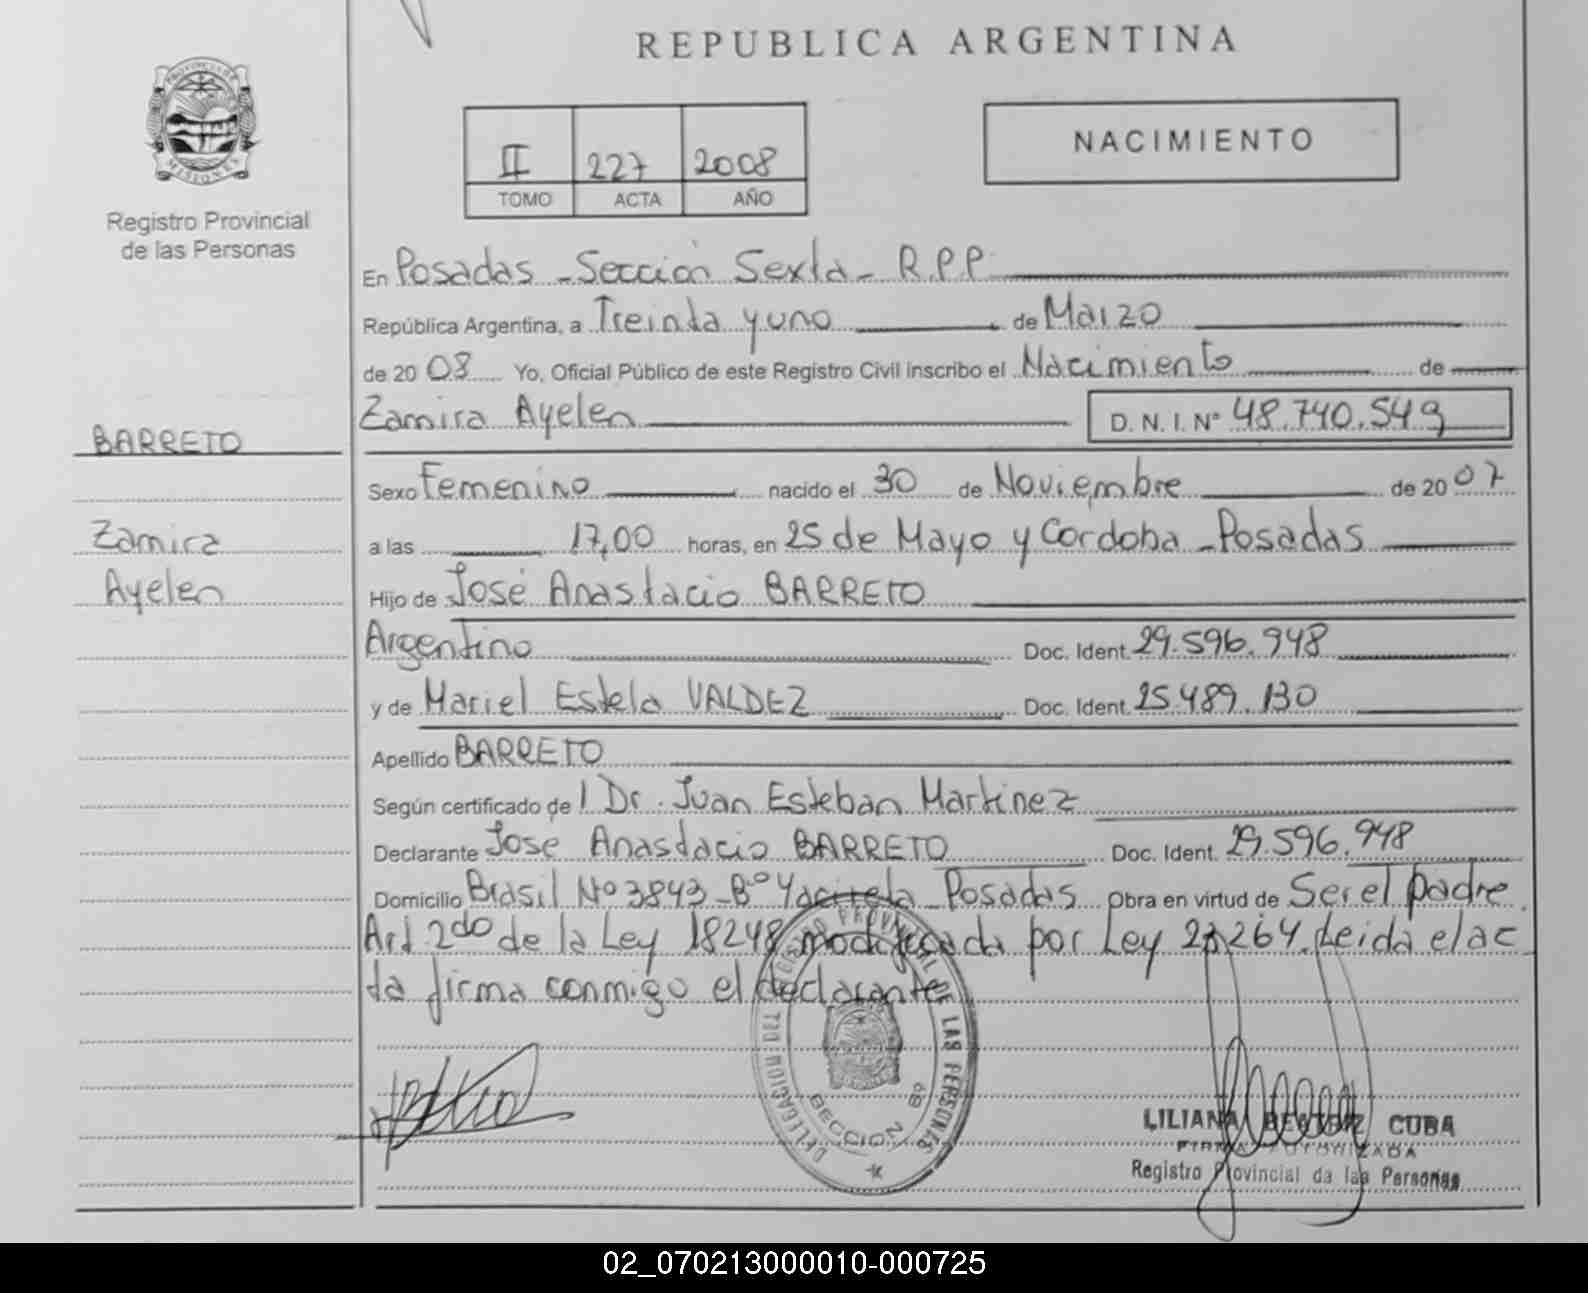 REPUBLICA ARGENTINA
PROVINCIA DE
MISIONES
Registro Provincial
de las Personas
II 227 2008
TOMO ACTA AÑO
NACIMIENTO
En Posadas - Sección Sexta - R.P.P.
República Argentina, a Treinta y uno de Marzo
de 20 08 Yo, Oficial Público de este Registro Civil inscribo el Nacimiento de
Zamira Ayelen D. N. I. N° 48.740.549
BARRETO
Sexo Femenino nacido el 30 de Noviembre de 20 07
Zamira
a las 17,00 horas, en 25 de Mayo y Cordoba - Posadas
Ayelen
Hijo de José Anastacio BARRETO
Argentino Doc. Ident. 29.596.948
y de Mariel Estela VALDEZ Doc. Ident. 25.489.130
Apellido BARRETO
Según certificado de / Dr. Juan Esteban Martinez
Declarante Jose Anastacio BARRETO Doc. Ident. 29.596.948
Domicilio Brasil Nº 3843 - Bº Yacireta - Posadas Obra en virtud de Ser el padre.
Art 2do de la Ley 18248 modificada por Ley 26264. Leida el ac
ta firma conmigo el declarante
DELEGACION DEL REGISTRO PROVINCIAL DE LAS PERSONAS
SECCION 6º
LILIANA BEATRIZ CUBA
FIRMA AUTORIZADA
Registro Provincial de las Personas
02_070213000010-000725